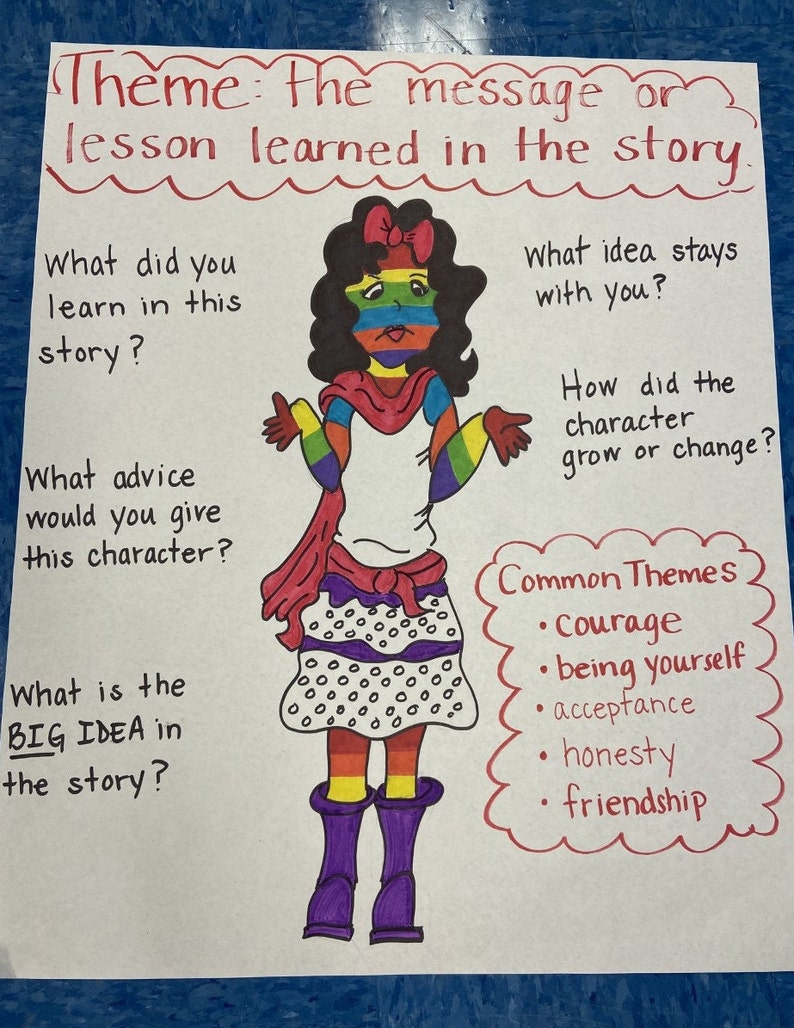 Theme: the message or
lesson learned in the story.
What did you
learn in this
story?
What advice
would you give
this character?
What is the
BIG IDEA in
the story?
What idea stays
with you?
How did the
character
grow or change?
Common Themes
• courage
• being yourself
• acceptance
• honesty
• friendship